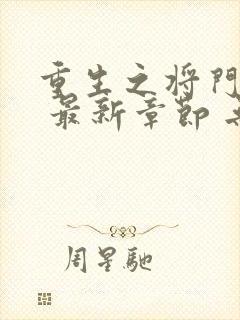 重生之将門
最新章節
周星馳